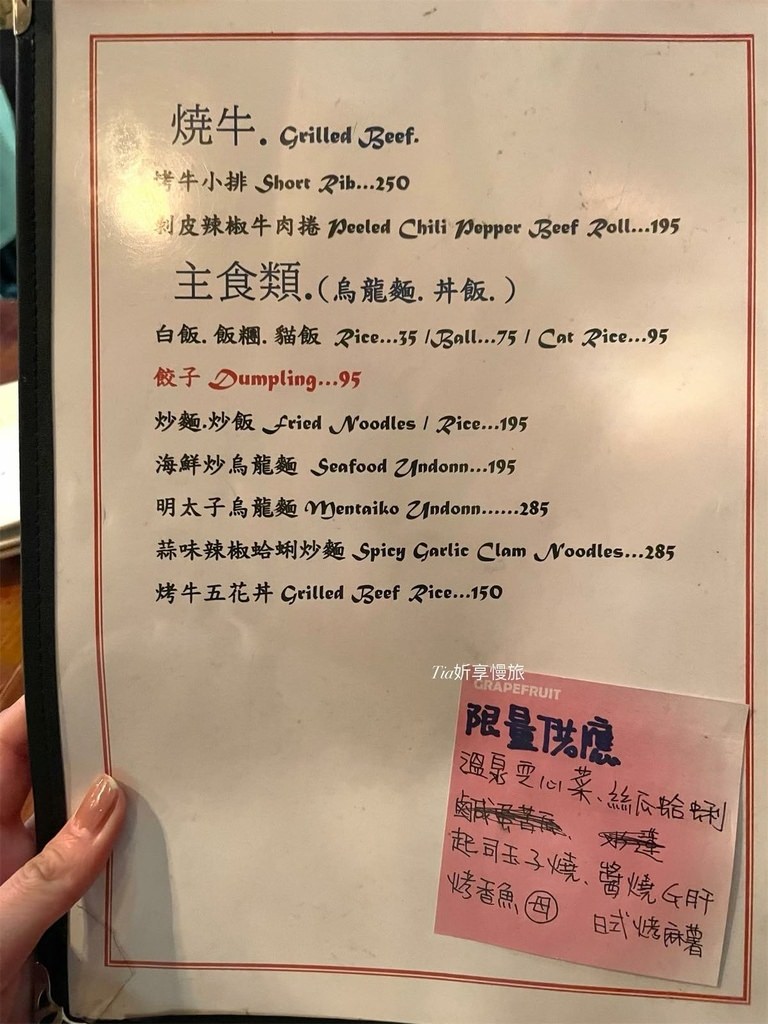 燒牛. Grilled Beef.
烤牛小排 Short Rib...250
剝皮辣椒牛肉捲 Peeled Chili Pepper Beef Roll...195
主食類.(烏龍麵. 丼飯. )
白飯. 飯糰. 貓飯 Rice...35 /Ball...75 / Cat Rice...95
餃子 Dumpling...95
炒麵.炒飯 Fried Noodles / Rice...195
海鮮炒烏龍麵 Seafood Undonn...195
明太子烏龍麵 Mentaiko Undonn......285
蒜味辣椒蛤蜊炒麵 Spicy Garlic Clam Noodles...285
烤牛五花丼 Grilled Beef Rice...150
Tia妡享慢旅
GRAPEFRUIT
限量供應
溫泉空心菜、絲瓜蛤蜊
起司玉子燒、醬燒G肝
烤香魚 母 日式烤麻薯